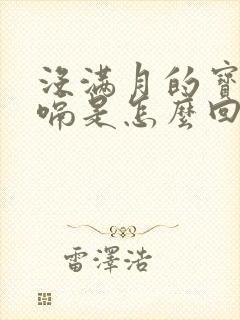 沒滿月的寶
嗝是怎麼回
雷澤浩